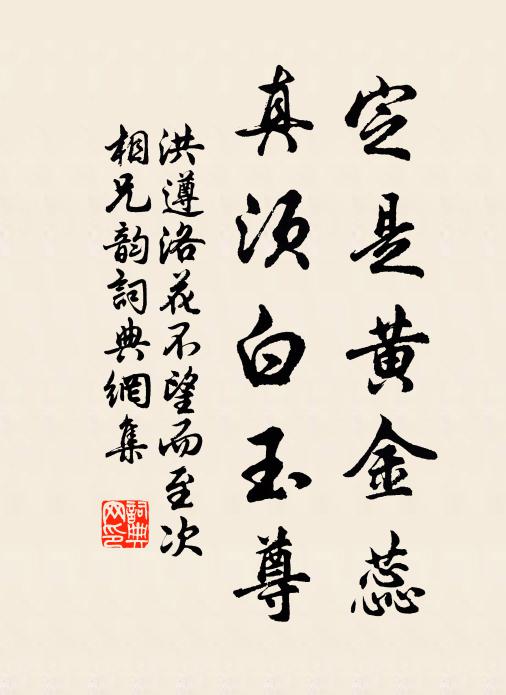 定是黄金蕊
真须白玉尊
洪遵洛花不望而至次
相兄韵詞典網集
詞典
网印